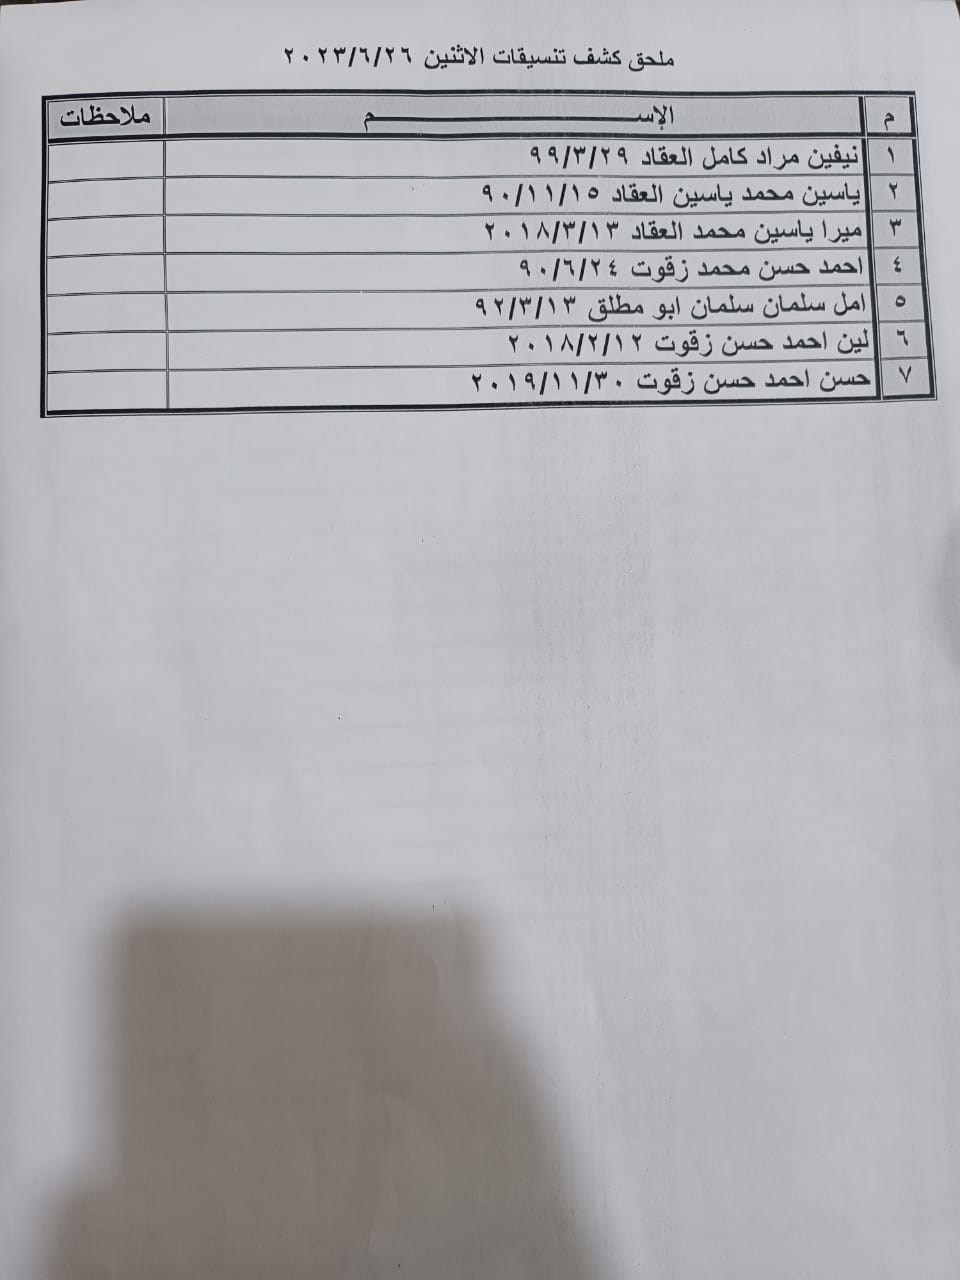 ملحق كشف تنسيقات الاثنين ٢٠٢٣/٦/٢٦
م الإســـــــــــم ملاحظات
١ نيفين مراد كامل العقاد ٩٩/٣/٢٩
٢ ياسين محمد ياسين العقاد ٩٠/١١/١٥
٣ ميرا ياسين محمد العقاد ٢٠١٨/٣/١٣
٤ احمد حسن محمد زقوت ٩٠/٦/٢٤
٥ امل سلمان سلمان ابو مطلق ٩٢/٣/١٣
٦ لين احمد حسن زقوت ٢٠١٨/٢/١٢
٧ حسن احمد حسن زقوت ٢٠١٩/١١/٣٠